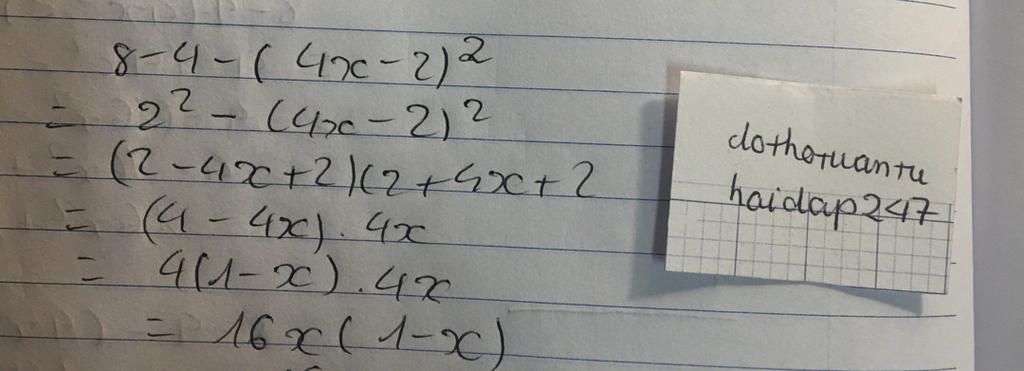 8-4-(4x-2)²
= 2² - (4x-2)²
= (2-4x+2)(2+4x+2
= (4-4x).4x
= 4(1-x).4x
= 16x(1-x)
dothotuantu
haidap247